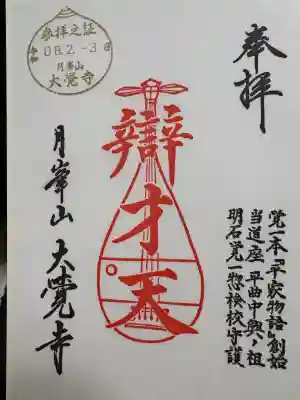 奉拝
覚一本『平家物語』創始
当道座 平曲中興ノ祖
明石覚一惣検校守護
辯才天
月峯山 大覺寺
参拝之証
令和 08.2.-3
月峯山
大覺寺